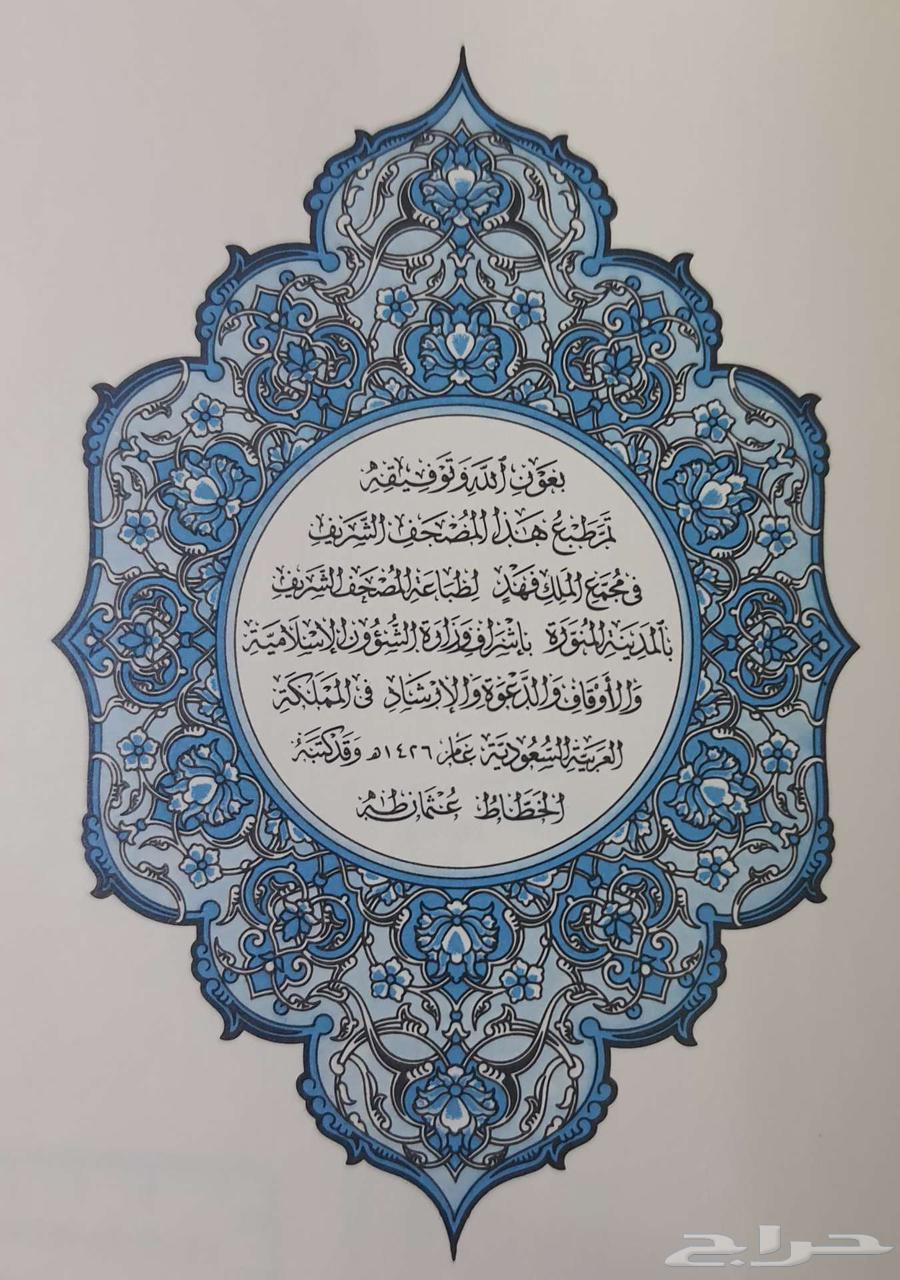 بِعَوْنِ ٱللَّهِ وَتَوْفِيقِهِ
تَمَّ طَبْعُ هَذَا المُصْحَفِ الشَّرِيفِ
فِي مُجَمَّعِ المَلِكِ فَهْدٍ لِطِبَاعَةِ المُصْحَفِ الشَّرِيفِ
بِالمَدِينَةِ المُنَوَّرَةِ بِإِشْرَافِ وَزَارَةِ الشُّؤُونِ الإِسْلَامِيَّةِ
وَالأَوْقَافِ وَالدَّعْوَةِ وَالإِرْشَادِ فِي المَمْلَكَةِ
العَرَبِيَّةِ السُّعُودِيَّةِ عَامَ ١٤٢٦هـ وَقَدْ كَتَبَهُ
الخَطَّاطُ عُثْمَان طه
حراج